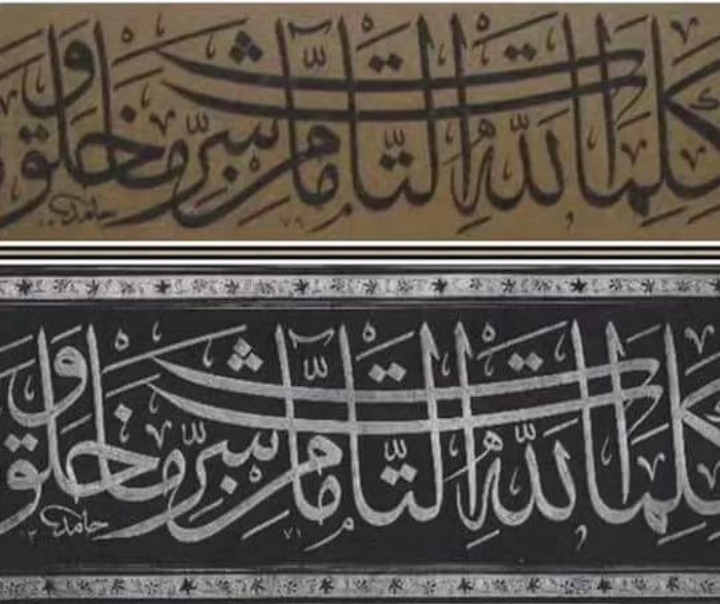 بكلمات الله التامات من شر ما خلق و
حامد
بكلمات الله التامات من شر ما خلق و
حامد